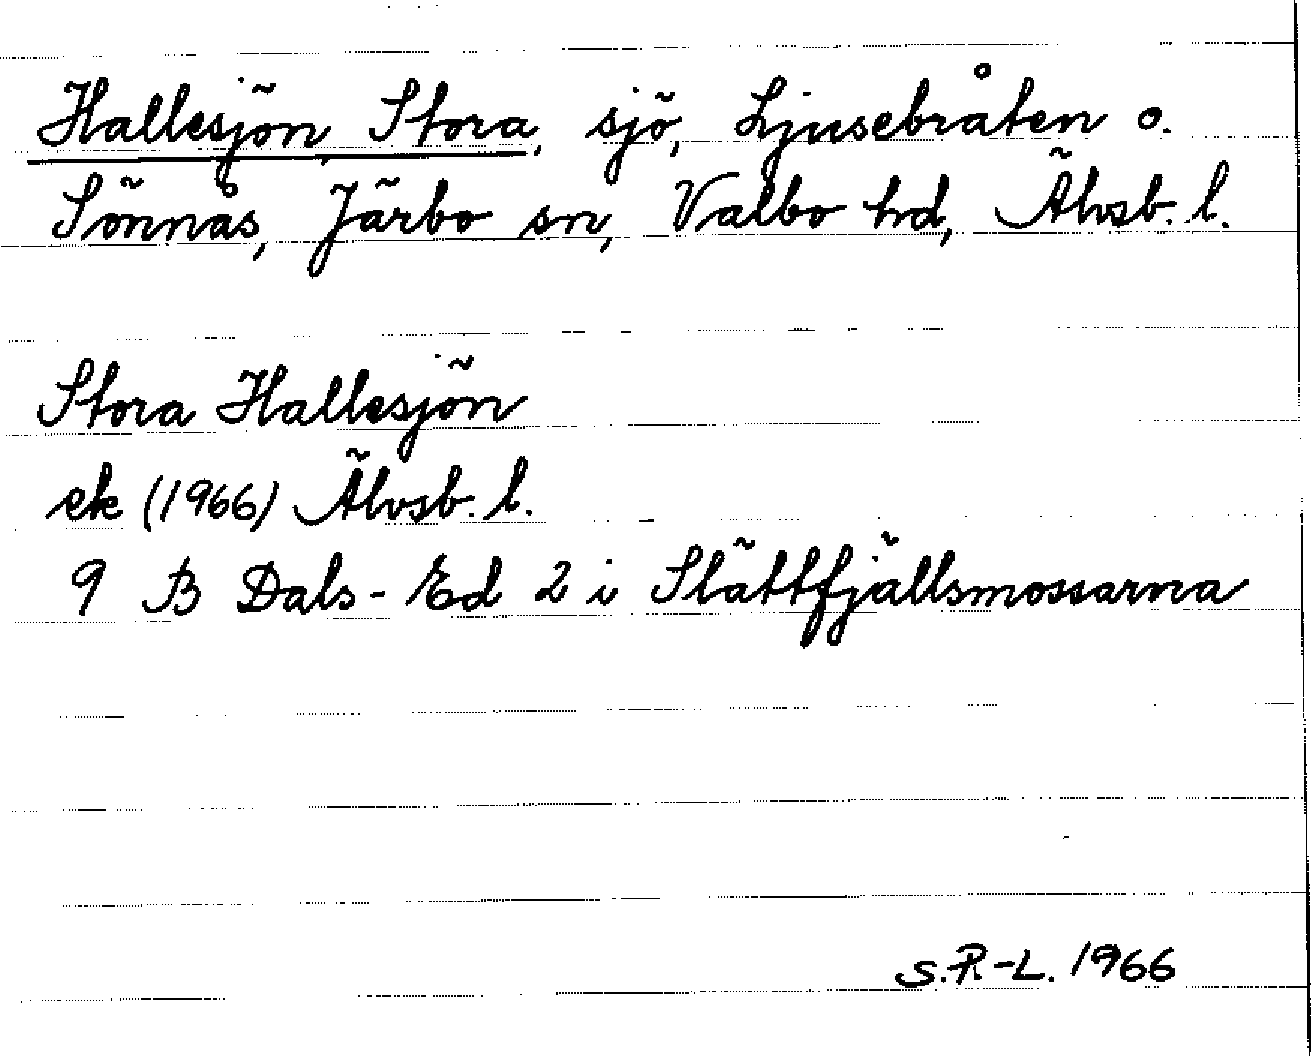 Hallesjön, Stora, sjö, Ljusebråten o.
Sönnås, Järbo sn, Valbo hd, Älvsb. l.
Stora Hallesjön
ek (1966) Älvsb. l.
9 B Dals-Ed 2 i Slättfjällsmossarna
S.R-L. 1966